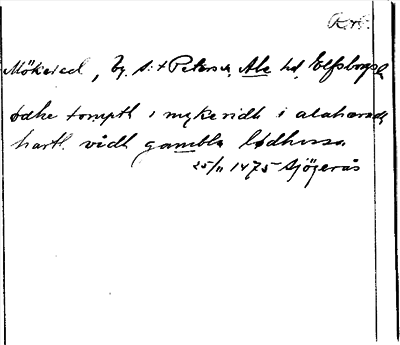 Mökered, by, S:t Peters s, Ale hd, Elfsborgs l
ødhe tompth i mykeridh i alahæradh
hart vidh gambla lødhosse
25/11 1475 Sjögerås